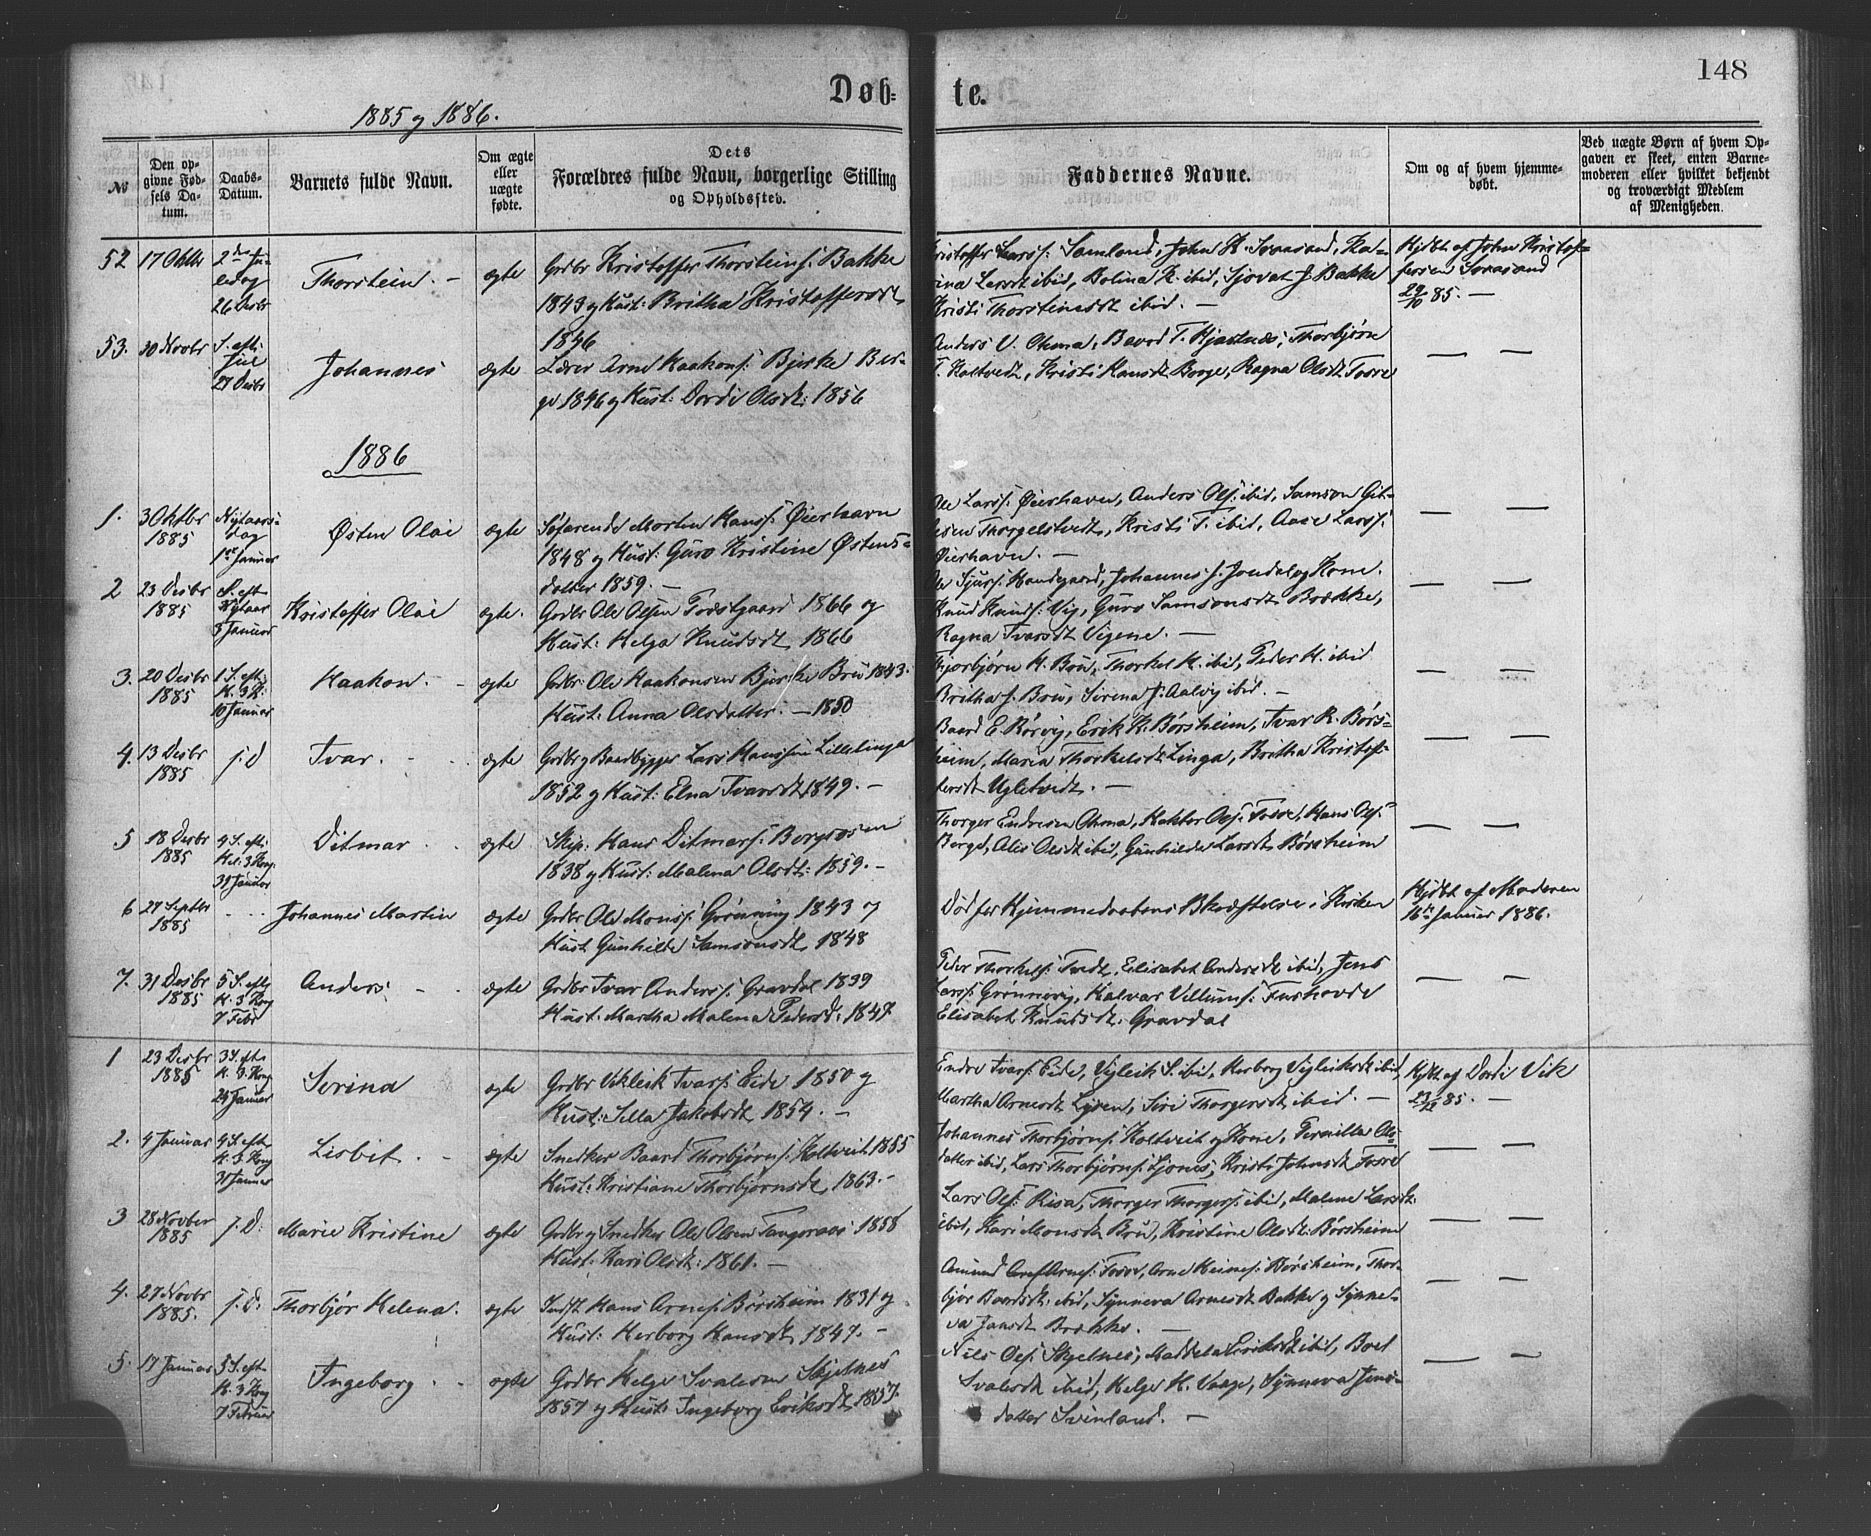 148
Døb= te.
1885 og 1886.
№
Den op-
givne Fød-
sels Da-
tum.
Daabs-
Datum.
Barnets fulde Navn.
Om ægte
eller
uægte
fødte.
Dets
Forældres fulde Navn, borgerlige Stilling
og Opholdssted.
Faddernes Navne.
Om og af hvem hjemme-
døbt.
Ved uægte Børn af hvem Op-
gaven er skeet, enten Barne-
moderen eller hvilket bekjendt
og troværdigt Medlem
af Menigheden.
52 17 Oktbr 26 Desbr Thorstein. ægte
Gbdbr Kristoffer Thorsteins: Bakke
1843 og Hust: Britha Kristoffersdt
1846
Kristoffer Larss: Samland, John K. Svaasand, Ka-
rina Larsdt ibid, Bolina K. ibid, Sjovat J. Bakke
Kristi Thorsteinsdt ibid. —
Hjdbt af John Kristof-
fersen Svaasand
29/10 85. —
53. 10 Novbr S. eft: Jul 27 Desbr Johannes ægte
Lærer Arne Haakons: Bjerke Ber-
ge 1846 og Hust: Dordi Olsdt: 1856
Anders V. Thorbjørn
T. Koltvedt, Kristi Hansdt Berge, Ragna Olsdt Fosse
— —
1886
1. 3 Oktbr 1885 Nytaars- dag 1ste Januar Østen Olai ægte
Søfarende Morten Hanss: Øierhavn
1848 og Hust: Guro Kristine Østens-
datter 1859. —
Ole Larss: Øierhavn, Anders Ols: ibid, Samson
Kristi T. ibid, Aase Larss:
Øierhavn. —
— —
2 23 Desbr 1885 S. eft Nytaar 3 Januar Kristoffer Olai ægte.
Gbdbr Ole Olsen 1866 og
Hust: Helga Knudsdt 1866
Ole Sjurs: Johannes J. Jondal og Kone.
Knud Knuds: Vig, Guro Samsonsdt Brække,
Ragna Ivarsdt Vigene. —
— —
3. 20 Desbr 1885 1 S. eft: H. 3 K: 10 Januar Haakon. ægte
Gbdbr: Ole Haakonsen Bjerke Bru 1843.
Hust: Anna Olsdatter. — 1850
Thorbjørn H. Bru, Thorkel H. ibid, Peder H. ibid
Britha J. Bru, Sirena J. Aalvig ibid. —
— —
4. 13 Desbr 1885 s. D Ivar. ægte
Gbdbr og Baadbygger Lars Hanssen Lillelinga
1852 og Hust: Elna Ivarsdt 1849. —
Baard E. Rørvig, Erik K. Børsheim, Ivar R. Børs-
heim, Maria Thorkelsdt Linga, Britha Kristof-
fersdt Ugletvedt. —
— —
5 18 Desbr 1885 4 S. eft: Hel: 3 Kong 31 Januar Ditmar ægte
Skip: Hans Ditmars: Bergsøen
1838 og Hust: Malena Olsdt: 1859. —
Thorger Endresen Ols: Fosse, Hans Ols:
Berge, Alis Olsdt ibid, Gunhilde Larsdt Børsheim
— —
6 27 Septbr 1885 Johannes Martin ægte
Gbdbr Ole Monss: Grønning 1843 og
Hust Gunhilde Samsonsdt 1848
Død før Hjemmedaabens Bkræftelse i Kirken
Hjdbt af Moderen
16de Januar 1886.
7. 31 Desbr 1885 5 S. eft: H. 3 Kong 7 Febr Anders ægte
Gbdbr Ivar Anderss: Gravdal 1839
Hust: Martha Malena Pedersdt: 1847
Peder Thorkels: Tvedt, Elisabet Andersdt ibid, Jens
Larss: Grønnevig, Halvar Villums: Furhovde
Elisabet Knudsdt: Gravdal
— —
1 23 Desbr 1885 3 S. eft: H. 3 Kong 24 Januar Serina ægte
Gbdbr Vikleik Ivars: Eide 1850 og
Hust: Silla Jakobsdt 1854. —
Endre Ivars: Eide, Vigleik S. ibid, Herborg Vigleiksdt ibid,
Martha Arnesdt Lysen, Siri Thorgersdt ibid. —
Hjdbt af Dordi Vik
23/12 85. —
2. 4 Januar 4 S. eft: H. 3 Kong 31 Januar Lisbet. ægte
Snedker Baard Thorbjørns: Koltveit 1855
Hust: Kristiane Thorbjørnsdt 1863. —
Johannes Thorbjørns: Koltveit og Kone, Pernilla Ols-
datter ibid, Lars Thorbjørns: Ljones, Kristi Johnsdt Fosse
— —
3 28 Novber 1885 s. D: Marie Kristine ægte
Gbdbr og Snedker Ole Olsen Tangeraas 1858
Hust: Kari Olsdt: 1861. —
Lars Ols: Risa, Thorger Thorgers: ibid, Malene Larsdt:
ibid, Kari Monsdt Bru, Kristine Olsdt: Børsheim
— —
4. 27 Novbr 1885. s. D: Thorbjør Helena. ægte
Indst Hans Arnes: Børsheim 1831 og
Hust: Herborg Hansdt 1847. —
Amund Arnes: Fosse, Arne Heines: Børsheim, Thor-
bjør Baardsdt: ibid, Synneva Arnesdt Bakke og Synne-
va Jansdt Brække. —
— —
5. 17 Januar 5 S. eft H. 3 Kong 7 Februar Ingeborg ægte
Gbdbr Helge Svalesen Skjelnes
1857 og Hust: Ingeborg Eriksdt 1857.
Nils Ols: Skjelnes, Maddela Eriksdt ibid, Boel
Svalesdt ibid, Helge H. Vaage, Synneva Jens-
datter Svinland. —
— —